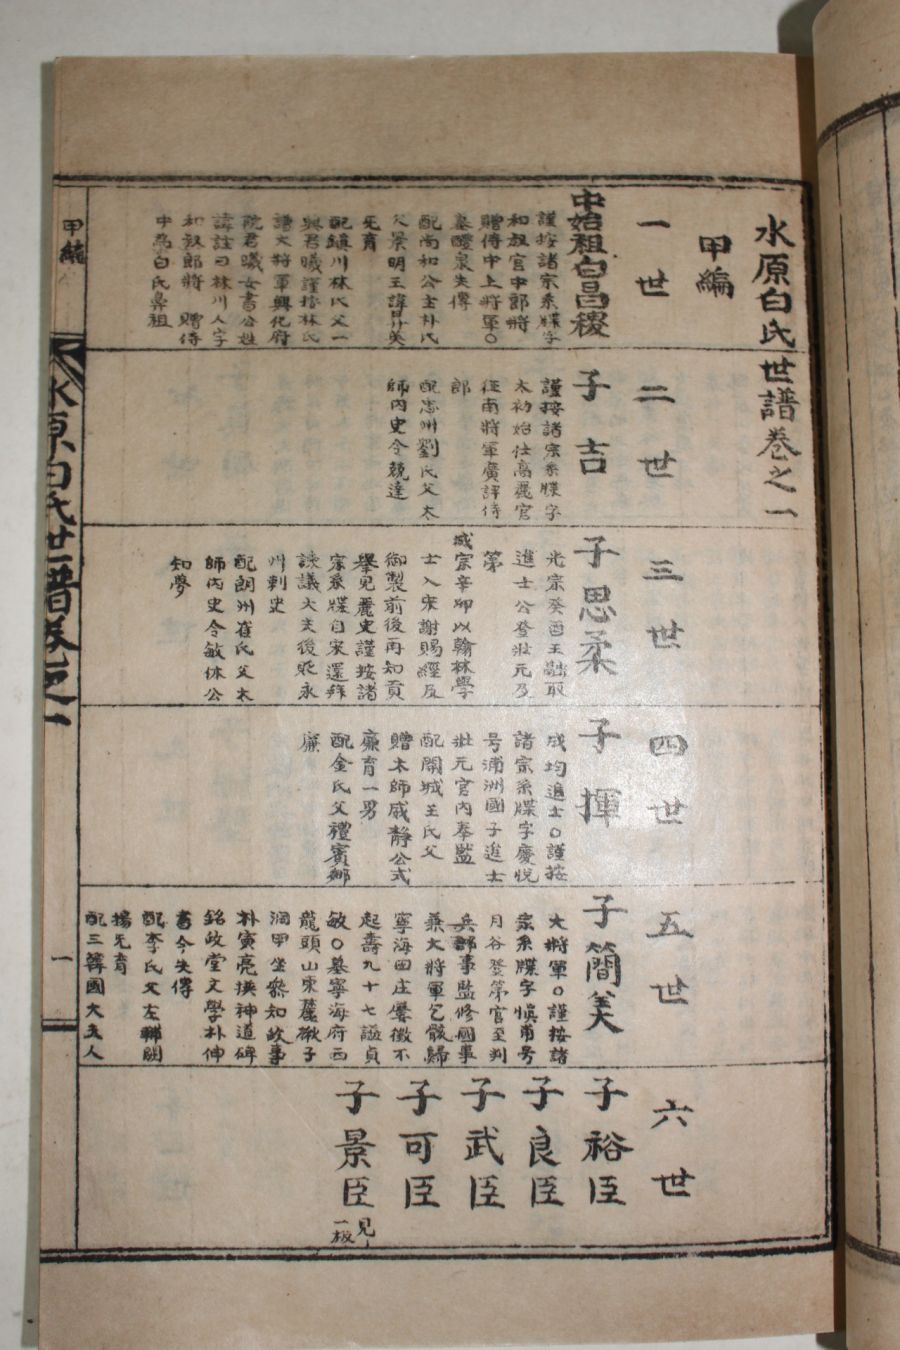 水原白氏世譜卷之一
甲編
一世
中始祖白昌稷
謹按諸宗系牒字
和叔官中郎將
贈侍中上將軍○
墓醴泉失傳
配尚和公主朴氏
父景明王諱昇英
无育
配鎭川林氏父一
與君曦謹按林氏
譜大將軍興化府
院君曦女書公姓
諱註曰林川人字
和叔郎將 贈侍
中爲白氏鼻祖
二世
子吉
謹按諸宗系牒字
太初始仕高麗官
征南將軍廣評侍
郎
配忠州劉氏父太
師內史令兢達
三世
子思柔
光宗癸酉王融取
進士公登壯元及
第
成宗辛卯以翰林學
士入宋謝賜經及
御製前後再知貢
擧見麗史謹按諸
宗系牒自宋還拜
諫議大夫後貶永
州刺史
配朗州崔氏父太
師內史令敏休公
知夢
四世
子揮
成均進士○謹按
諸宗系牒字慶悅
号浦洲國子進士
壯元官內奉監
配開城王氏父
贈太師威靜公式
廉育一男
配金氏父禮賓卿
廉
五世
子簡美
大將軍○謹按諸
宗系牒字愼甫号
月谷登第官至判
兵部事監修國事
兼大將軍乞骸歸
寧海田庄屢徵不
起壽九十七謚貞
敏○墓寧海府西
龍頭山東麓楸子
洞甲坐參知政事
朴寅亮撰神道碑
銘政堂文學朴伸
書今失傳
配李氏父左
揚无育
配三韓國大夫人
六世
子裕臣
子良臣
子武臣
子可臣
子景臣
見一板
甲編
水原白氏世譜卷之一
一